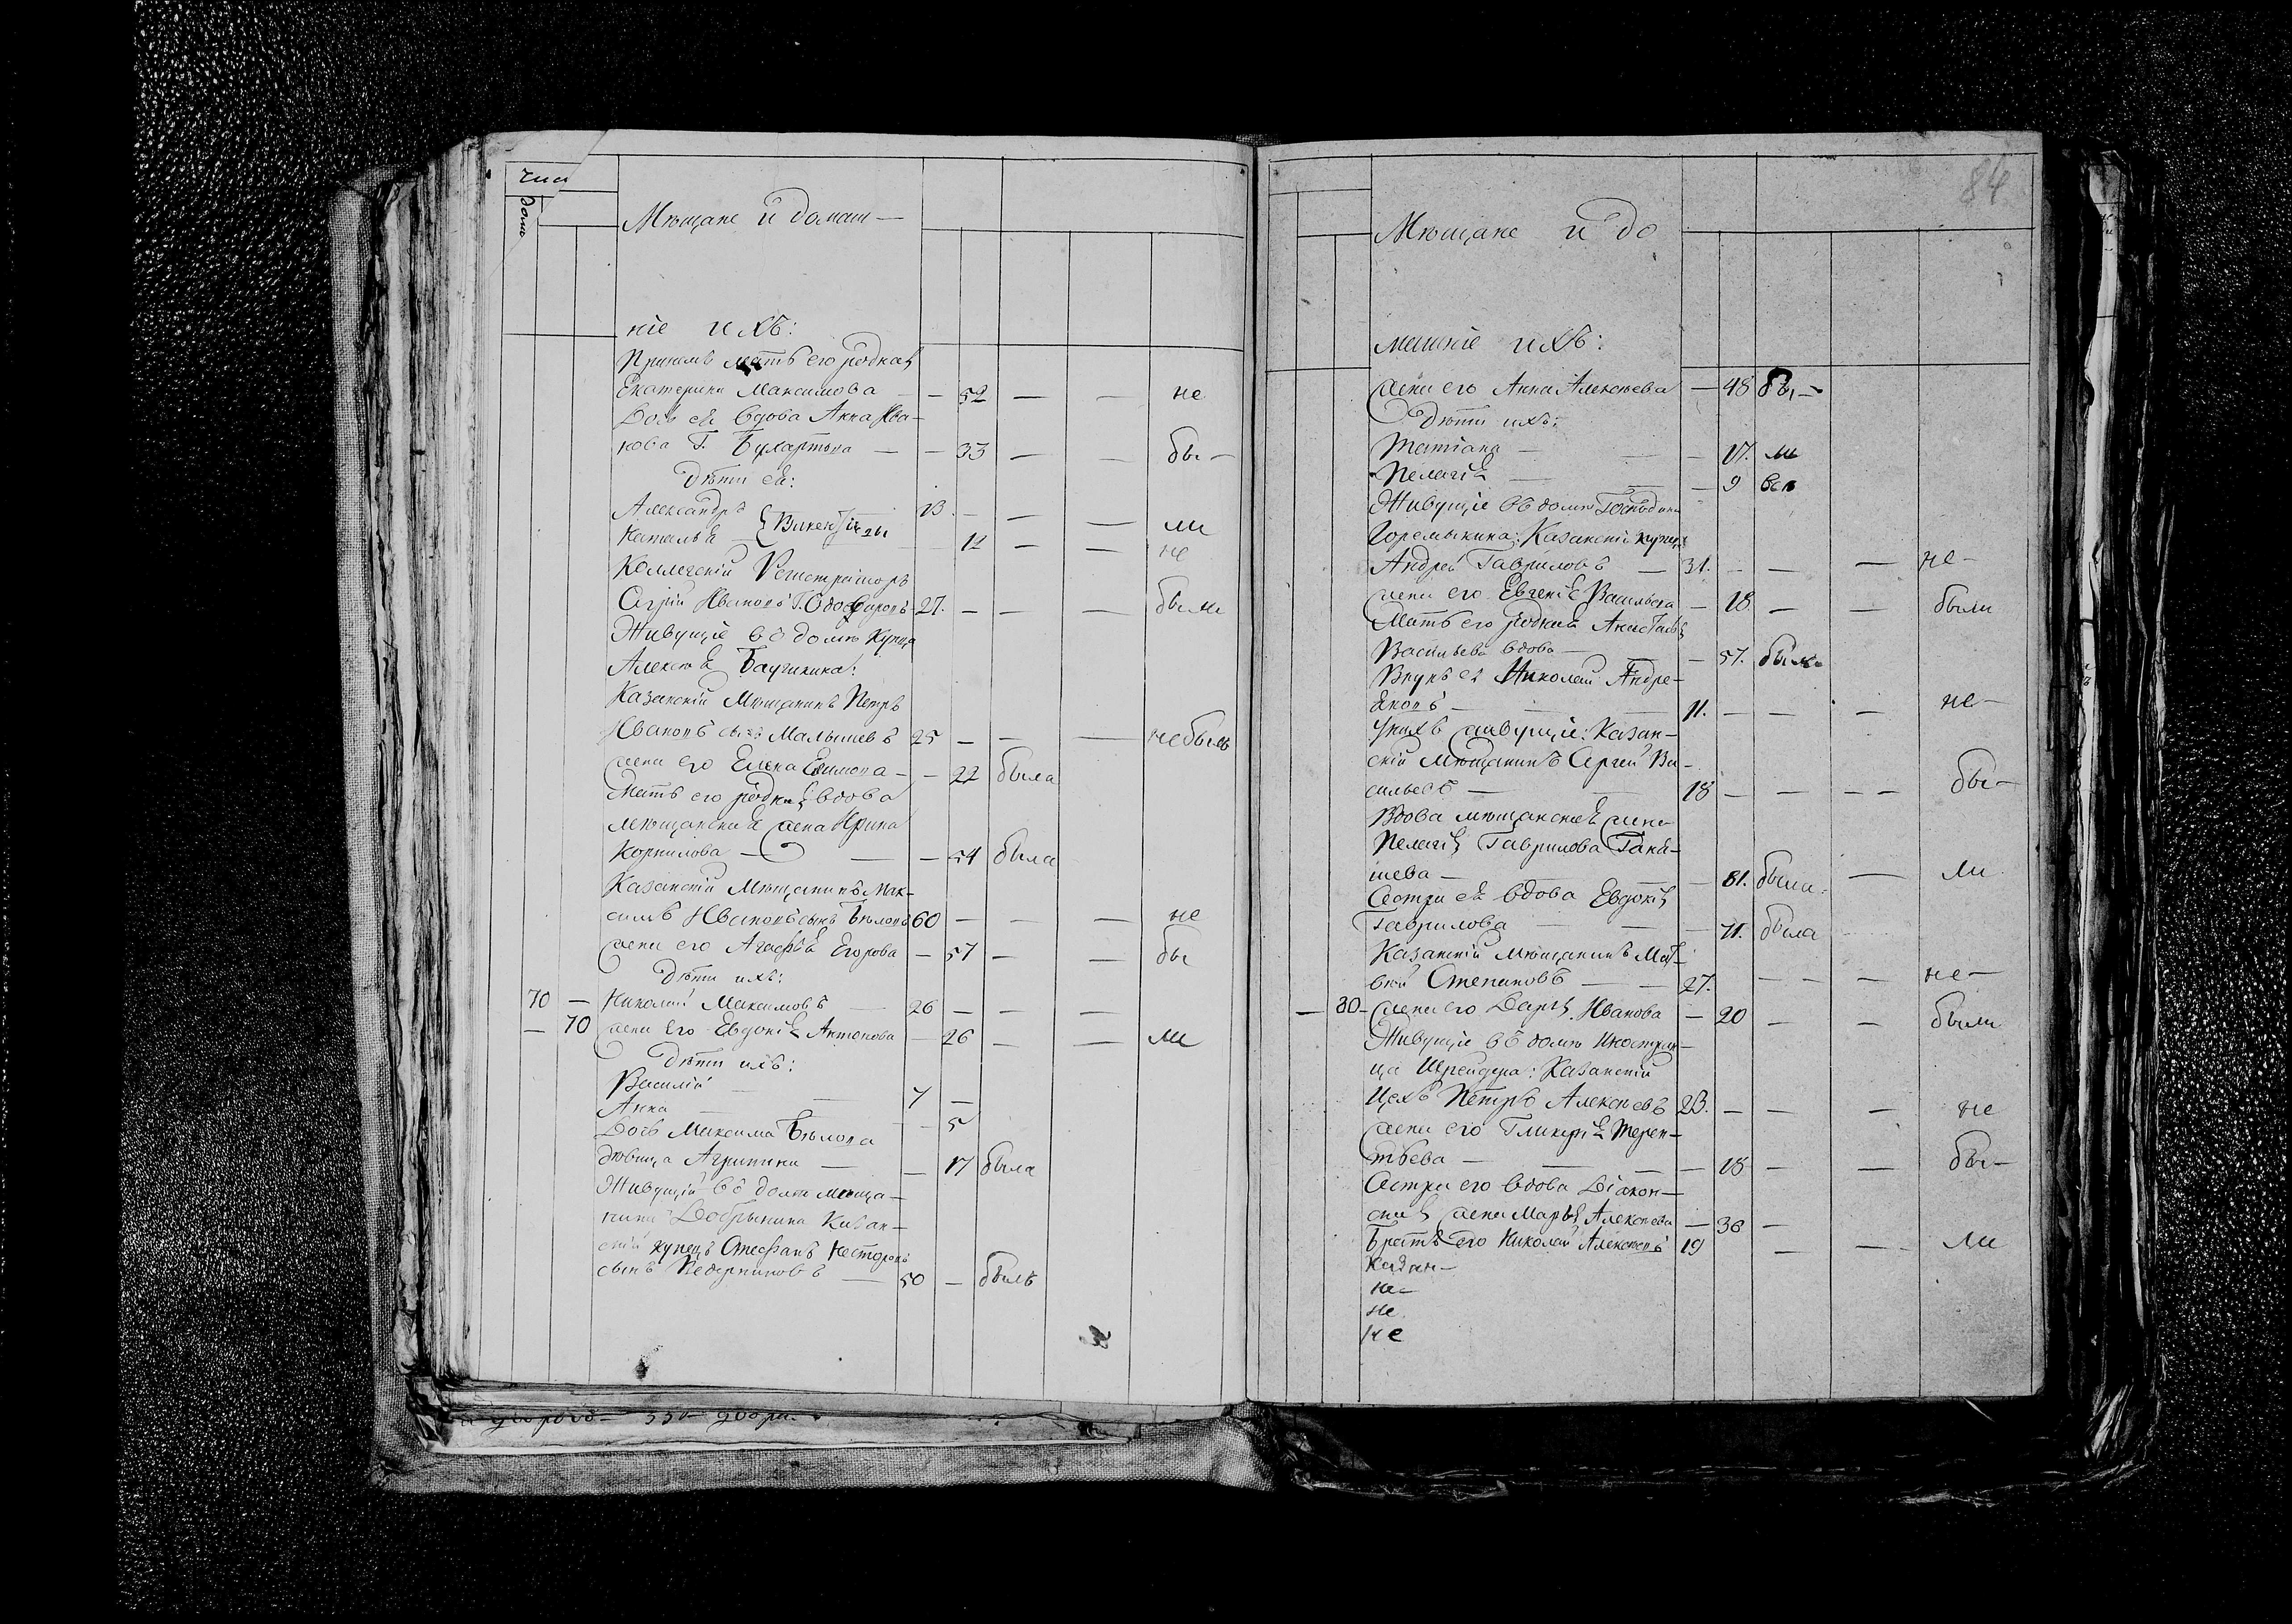 Чис
Домо
Мѣщане и домаш—
ніе ихъ:
При немъ мать его родная
Екатерина Максимова — 52 — — не
Дочь ея вдова Анна Ива-
нова Г. — — 33 — — бы-
Дѣти ея:
Александръ 13. — — —
Наталья 12 — — ли
не
Коллегскій Регистраторъ
Иванов Г. 27. — — — были
Живущіе въ домѣ Купца
Алексѣя
Казанскій Мѣщанинъ Петръ
Ивановъ сынъ Малышевъ 25 — — — небылъ
жена его Елена Ефимова — — 22 была
Мать его родная вдова
мѣщанская жена Ирина
Корнилова — — — 54 была
Казанскій Мѣщанинъ Мак-
симъ Ивановъ сынъ Бѣловъ 60 — — — не
жена его Агафья Егорова — 57 — — бы
Дѣти ихъ:
70 — Николай Максимовъ — 26 — — —
— 70 жена его Евдокія Антонова — 26 — — ли
Дѣти ихъ:
Василій — — 7 —
Анна — — — 5
Дочь Максима Бѣлова
дѣвица Агрипина — — 17 была
Живущій въ домѣ мѣща-
нина Добрынина Казан-
скій купецъ Стефанъ Несторовъ
сынъ — 50 — былъ
84
Мѣщане и до
машніе ихъ:
жена его Анна Алексѣева — 48 бы-
Дѣти ихъ:
Татіана — — — 17. ли
Пелагія — — — 9 всѣ
Живущіе въ домѣ Господина
Горемыкина: Казанскій купецъ
Андрей Гавриловъ — 31. — — — не—
жена его Евгенія Васильева — 18 — — были
Мать его родная Анастасія
Васильева вдова — — 57. была
Внукъ ея Николай Андре-
евъ — — — 11. — — — не—
У нихъ живущіе: Казан-
скій Мѣщанинъ Сергей Ва-
сильевъ — — 18 — — — — бы—
Вдова мѣщанская жена
Пелагія Гаврилова
шева — — — 81. была. — ли
Сестра ея вдова Евдокія
Гаврилова — — — 71. была
Казанскій Мѣщанинъ Мат-
вей Степановъ — — 27. — — — не—
— 80 — жена его Дарья Иванова — 20 — — были
Живущіе въ домѣ Иностран-
ца Шрейдера: Казанскій
Цехъ Петръ Алексѣевъ 23. — — — не
жена его Гликерія Терен-
тьева — — — — 18 — — бы—
Сестра его вдова Діакон-
ская жена Марья Алексѣева — 36 —
Братъ его Николай Алексѣевъ 19 — — — ли
Казан—
не—
не
не